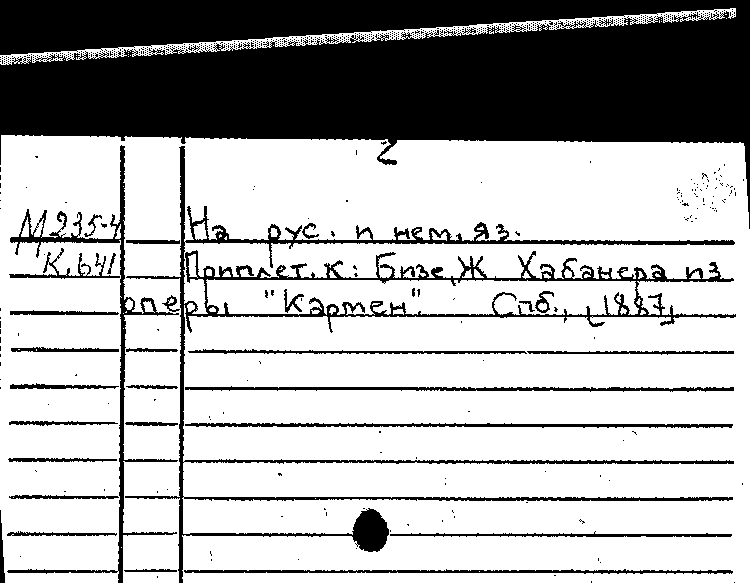 2
М 235-4
К.641
На рус. и нем. яз.
Приплет. к: Бизе, Ж. Хабанера из
оперы "Кармен". Спб., [1887]